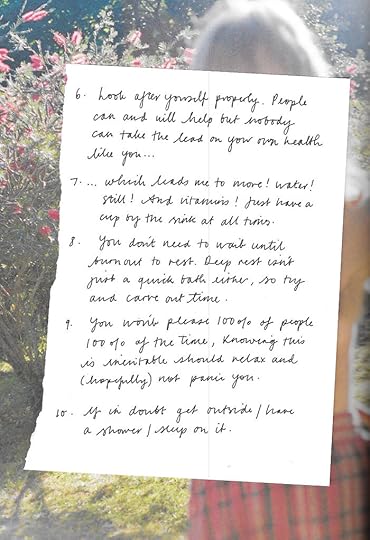 6. Look after yourself properly. People
can and will help but nobody
can take the lead on your own health
like you...
7. ... which leads me to more! water!
still! And vitamins! Just have a
cup by the sink at all times.
8. You don't need to wait until
burnout to rest. Deep rest isn't
just a quick bath either, so try
and carve out time.
9. You won't please 100% of people
100% of the time, knowing this
is inevitable should relax and
(hopefully) not panic you.
10. If in doubt get outside / have
a shower / sleep on it.